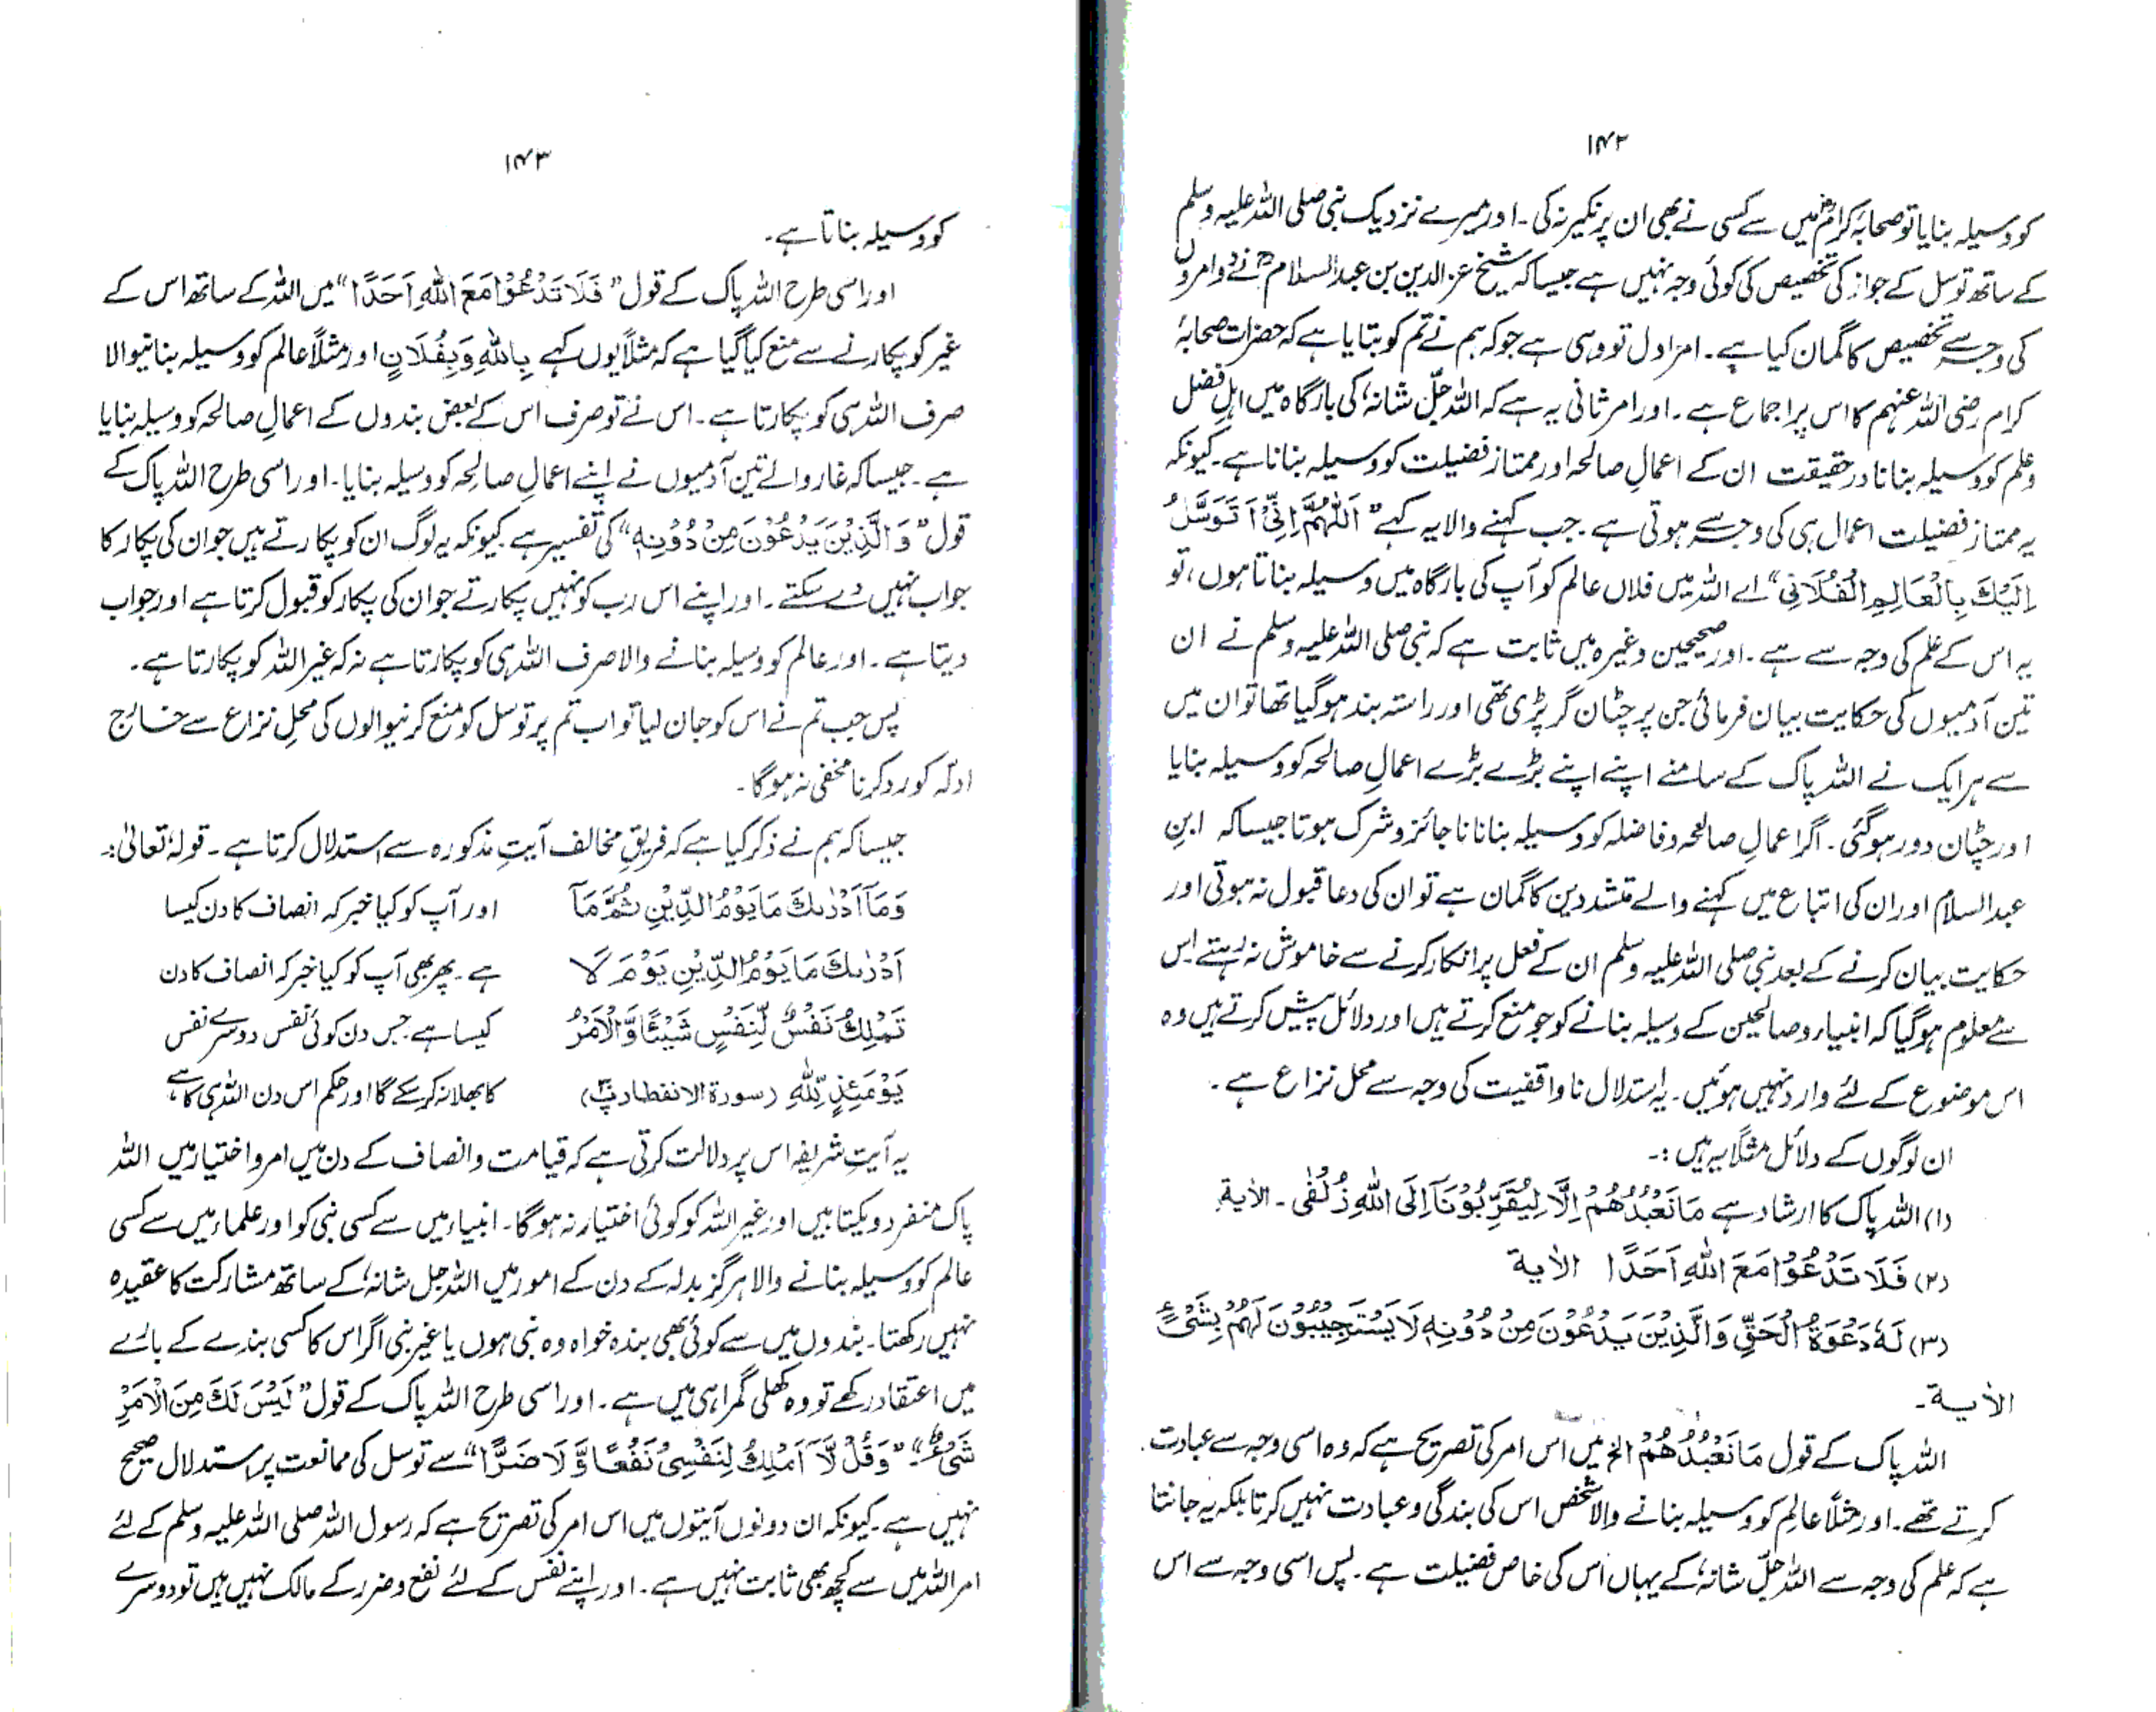 ۱۴۲
کو وسیلہ بنایا تو صحابۂ کرامؓ میں سے کسی نے بھی ان پر نکیر نہ کی۔ اور میرے نزدیک نبی صلی اللہ علیہ وسلم
کے ساتھ توسل کے جواز کی تخصیص کی کوئی وجہ نہیں ہے جیسا کہ شیخ عز الدین بن عبدالسلامؒ نے دو امروں
کی وجہ سے تخصیص کا گمان کیا ہے۔ امر اول تو وہی ہے جو کہ ہم نے تم کو بتایا ہے کہ حضرات صحابۂ
کرام رضی اللہ عنہم کا اس پر اجماع ہے۔ اور امر ثانی یہ ہے کہ اللہ جلّ شانہٗ کی بارگاہ میں اہلِ فضل
وعلم کو وسیلہ بنانا درحقیقت ان کے اعمالِ صالحہ اور ممتاز فضیلت کو وسیلہ بنانا ہے۔ کیونکہ
یہ ممتاز فضیلت اعمال ہی کی وجہ سے ہوتی ہے۔ جب کہنے والا یہ کہے ”اَللّٰهُمَّ اِنِّیْ اَتَوَسَّلُ
اِلَیْکَ بِالْعَالِمِ الْفُلَانِی“ اے اللہ میں فلاں عالم کو آپ کی بارگاہ میں وسیلہ بناتا ہوں، تو
یہ اس کے علم کی وجہ سے ہے۔ اور صحیحین وغیرہ میں ثابت ہے کہ نبی صلی اللہ علیہ وسلم نے ان
تین آدمیوں کی حکایت بیان فرمائی جن پر چٹان گر پڑی تھی اور راستہ بند ہوگیا تھا تو ان میں
سے ہر ایک نے اللہ پاک کے سامنے اپنے اپنے بڑے بڑے اعمالِ صالحہ کو وسیلہ بنایا
اور چٹان دور ہوگئی۔ اگر اعمالِ صالحہ وفاضلہ کو وسیلہ بنانا ناجائز وشرک ہوتا جیسا کہ ابنِ
عبدالسلام اور ان کی اتباع میں کہنے والے متشددین کا گمان ہے تو ان کی دعا قبول نہ ہوتی اور
حکایت بیان کرنے کے بعد نبی صلی اللہ علیہ وسلم ان کے فعل پر انکار کرنے سے خاموش نہ رہتے اس
سے معلوم ہوگیا کہ انبیاء وصالحین کے وسیلہ بنانے کو جو منع کرتے ہیں اور دلائل پیش کرتے ہیں وہ
اس موضوع کے لئے وارد نہیں ہوئیں۔ یہ استدلال ناواقفیت کی وجہ سے محل نزاع ہے۔
ان لوگوں کے دلائل مثلاً یہ ہیں :۔
(۱) اللہ پاک کا ارشاد ہے مَا نَعْبُدُهُمْ اِلَّا لِیُقَرِّبُوْنَآ اِلَی اللّٰهِ زُلْفٰی۔ الاٰیة
(۲) فَلَا تَدْعُوْا مَعَ اللّٰهِ اَحَدًا الاٰیة
(۳) لَهٗ دَعْوَةُ الْحَقِّ وَالَّذِیْنَ یَدْعُوْنَ مِنْ دُوْنِهٖ لَا یَسْتَجِیْبُوْنَ لَهُمْ بِشَیْءٍ
الاٰیة۔
اللہ پاک کے قول مَا نَعْبُدُهُمْ الخ میں اس امر کی تصریح ہے کہ وہ اسی وجہ سے عبادت
کرتے تھے۔ اور مثلاً عالِم کو وسیلہ بنانے والا شخص اس کی بندگی وعبادت نہیں کرتا بلکہ یہ جانتا
ہے کہ علم کی وجہ سے اللہ جلّ شانہٗ کے یہاں اس کی خاص فضیلت ہے۔ پس اسی وجہ سے اس
۱۴۳
کو وسیلہ بناتا ہے۔
اور اسی طرح اللہ پاک کے قول ”فَلَا تَدْعُوْا مَعَ اللّٰهِ اَحَدًا“ میں اللہ کے ساتھ اس کے
غیر کو پکارنے سے منع کیا گیا ہے کہ مثلاً یوں کہے بِاللّٰهِ وَبِفُلَانٍ اور مثلاً عالم کو وسیلہ بنانیوالا
صرف اللہ ہی کو پکارتا ہے۔ اس نے تو صرف اس کے بعض بندوں کے اعمالِ صالحہ کو وسیلہ بنایا
ہے۔ جیسا کہ غار والے تین آدمیوں نے اپنے اعمالِ صالحہ کو وسیلہ بنایا۔ اور اسی طرح اللہ پاک کے
قول ”وَالَّذِیْنَ یَدْعُوْنَ مِنْ دُوْنِهٖ“ کی تفسیر ہے کیونکہ یہ لوگ ان کو پکارتے ہیں جو ان کی پکار کا
جواب نہیں دے سکتے۔ اور اپنے اس رب کو نہیں پکارتے جو ان کی پکار کو قبول کرتا ہے اور جواب
دیتا ہے۔ اور عالم کو وسیلہ بنانے والا صرف اللہ ہی کو پکارتا ہے نہ کہ غیر اللہ کو پکارتا ہے۔
پس جب تم نے اس کو جان لیا تو اب تم پر توسل کو منع کرنیوالوں کی محلِ نزاع سے خارج
ادلّہ کو رد کرنا مخفی نہ ہوگا۔
جیسا کہ ہم نے ذکر کیا ہے کہ فریقِ مخالف آیتِ مذکورہ سے استدلال کرتا ہے۔ قولہٗ تعالیٰ:۔
وَمَآ اَدْرٰىكَ مَا یَوْمُ الدِّیْنِ ثُمَّ مَآ اور آپ کو کیا خبر کہ انصاف کا دن کیسا
اَدْرٰىكَ مَا یَوْمُ الدِّیْنِ یَوْمَ لَا ہے۔ پھر بھی آپ کو کیا خبر کہ انصاف کا دن
تَمْلِكُ نَفْسٌ لِّنَفْسٍ شَیْئًا وَّالْاَمْرُ کیسا ہے جس دن کوئی نفس دوسرے نفس
یَوْمَئِذٍ لِّلّٰهِ (سورة الانفطار پ۳۰) کا بھلا نہ کرسکے گا اور حکم اس دن اللہ ہی کا ہے
یہ آیتِ شریفہ اس پر دلالت کرتی ہے کہ قیامت وانصاف کے دن میں امر واختیار میں اللہ
پاک منفرد ویکتا ہیں اور غیر اللہ کو کوئی اختیار نہ ہوگا۔ انبیاء میں سے کسی نبی کو اور علماء میں سے کسی
عالم کو وسیلہ بنانے والا ہرگز بدلہ کے دن کے امور میں اللہ جل شانہٗ کے ساتھ مشارکت کا عقیدہ
نہیں رکھتا۔ بندوں میں سے کوئی بھی بندہ خواہ وہ نبی ہوں یا غیر نبی اگر اس کا کسی بندے کے بارے
میں اعتقاد رکھے تو وہ کھلی گمراہی میں ہے۔ اور اسی طرح اللہ پاک کے قول ”لَیْسَ لَكَ مِنَ الْاَمْرِ
شَیْءٌ“۔ ”وَقُلْ لَّآ اَمْلِكُ لِنَفْسِیْ نَفْعًا وَّلَا ضَرًّا“ سے توسل کی ممانعت پر استدلال صحیح
نہیں ہے۔ کیونکہ ان دونوں آیتوں میں اس امر کی تصریح ہے کہ رسول اللہ صلی اللہ علیہ وسلم کے لئے
امر اللہ میں سے کچھ بھی ثابت نہیں ہے۔ اور اپنے نفس کے لئے نفع وضرر کے مالک نہیں ہیں تو دوسرے